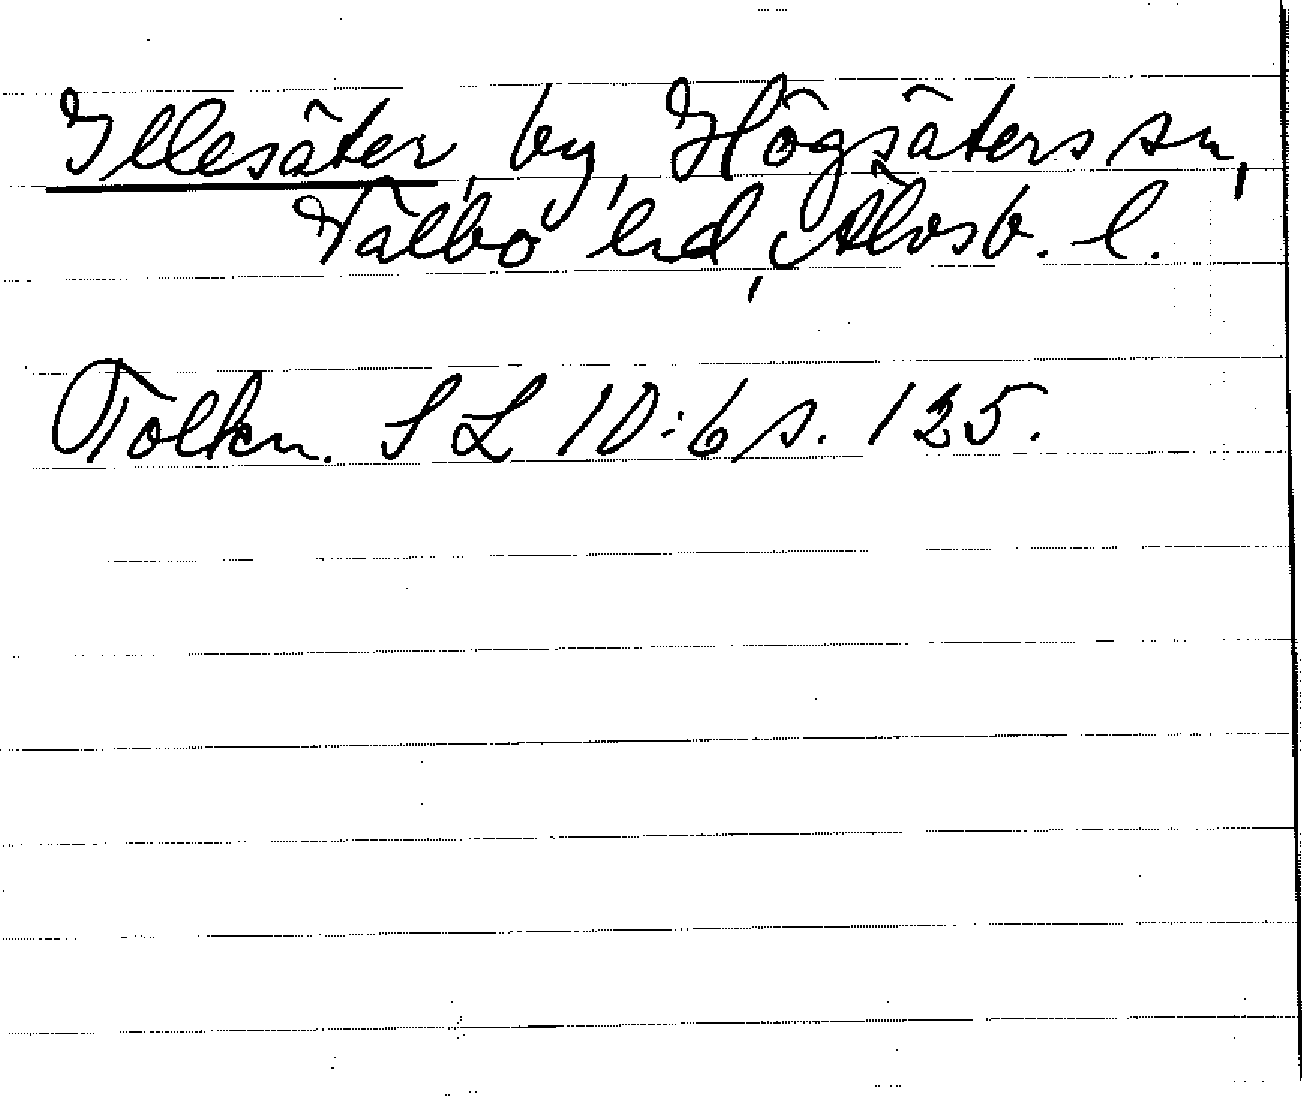 Illesäter, by, Högsäters sn,
Valbo hd, Älvsb. l.
Tolkn. SL 10:6 s. 125.